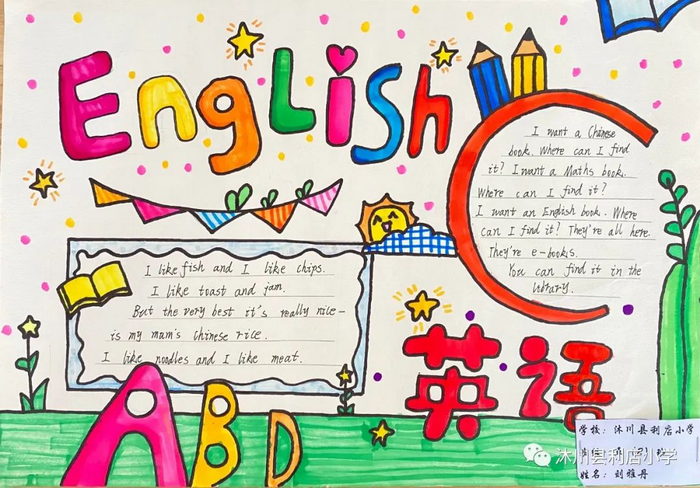 English
I want a Chinese
book. Where can I find
it? I want a Maths book.
Where can I find it?
I want an English book. Where
can I find it? They're all here.
They're e-books.
You can find it in the
library.
I like fish and I like chips.
I like toast and jam.
But the very best it's really nice-
is my mum's chinese rice.
I like noodles and I like meat.
英语
ABD
学校：沐川县利店小学
姓名：刘雅丹
沐川县利店小学